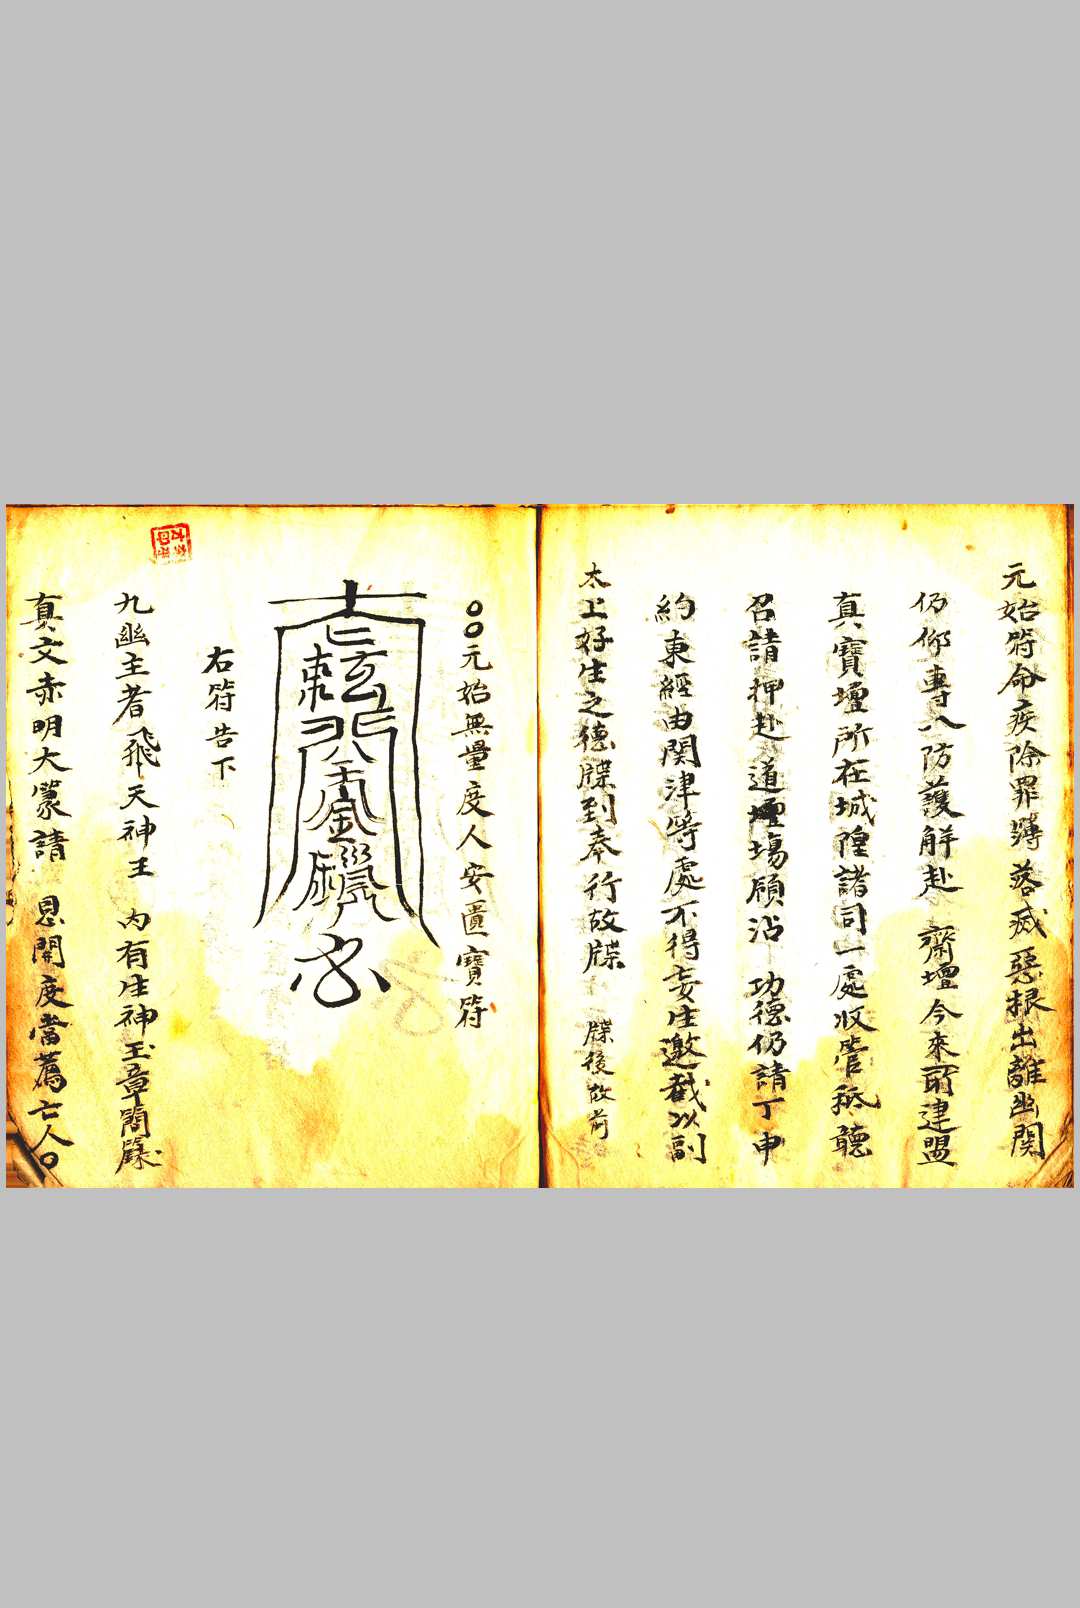 元始符命疾除罪簿落滅惡根出離幽関
仍仰專人防護解赴 齋壇今來所建盟
真寶壇所在城隍諸司一處收管秪聽
召請押赴道壇塲領沾 功德仍請丁申
約束經由関津等處不得妄生邀截以副
太上好生之德牒到奉行故牒 牒後故前
〇〇元始無量度人安匱寶符
右符告下
九幽主者飛天神王 內有生神玉章簡籙
真文赤明大篆請 恩開度當薦亡人〇